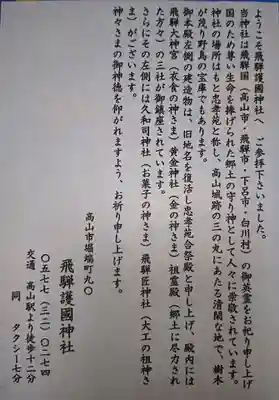 ようこそ飛騨護國神社へ　ご参拝下さいました。
当神社は飛騨国（高山市・飛騨市・下呂市・白川村）の御英霊をお祀り申し上げ
国のため尊い生命を捧げられた郷土の守り神として人々に崇敬されています。
神社の場所はもと忠孝苑と称し、高山城跡の三の丸にあたる清閑な地で、樹木
が茂り野鳥の宝庫でもあります。
御本殿左側の建造物は、旧地名を復活し忠孝苑合祭殿と申し上げ、殿内には
飛騨大神宮（衣食の神さま）黄金神社（金の神さま）祖霊殿（郷土に尽力され
た方々）の三社が御鎮座されています。
さらにその左側には久和司神社（お菓子の神さま）飛騨匠神社（大工の祖神さ
ま）がございます。
神々さまの御神徳を仰がれますよう、お祈り申し上げます。
高山市堀端町九〇
飛騨護國神社
〇五七七（三二）〇二七四
交通　高山駅より徒歩十二分
同　タクシー七分